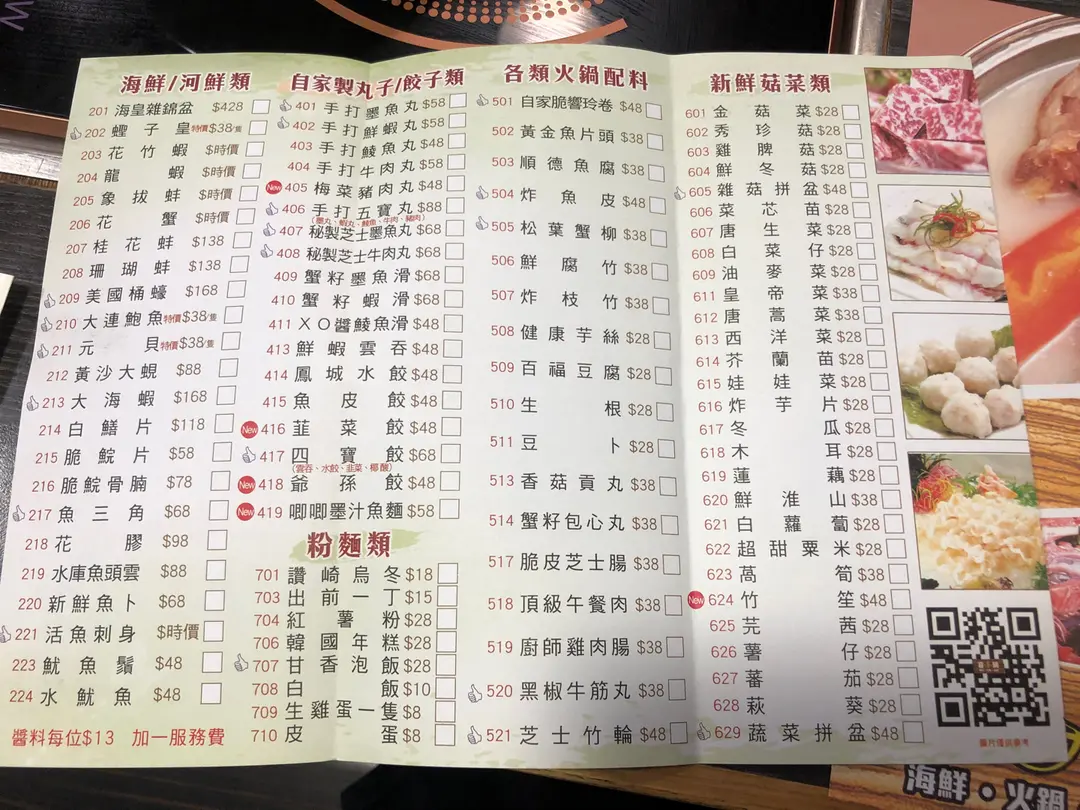 海鮮/河鮮類
201 海皇雜錦盆 $428
202 蟶子皇 特價$38/隻
203 花竹蝦 $時價
204 龍蝦 $時價
205 象拔蚌 $時價
206 花蟹 $時價
207 桂花蚌 $138
208 珊瑚蚌 $138
209 美國桶蠔 $168
210 大連鮑魚 特價$38/隻
211 元貝 特價$38/隻
212 黃沙大蜆 $88
213 大海蝦 $168
214 白鱔片 $118
215 脆鯇片 $58
216 脆鯇骨腩 $78
217 魚三角 $68
218 花膠 $98
219 水庫魚頭雲 $88
220 新鮮魚卜 $68
221 活魚刺身 $時價
223 魷魚鬚 $48
224 水魷魚 $48
醬料每位$13 加一服務費
自家製丸子/餃子類
401 手打墨魚丸 $58
402 手打鮮蝦丸 $58
403 手打鯪魚丸 $48
404 手打牛肉丸 $58
New 405 梅菜豬肉丸 $48
406 手打五寶丸 $88
(墨丸、蝦丸、鯪魚、牛肉、豬肉)
407 秘製芝士墨魚丸 $68
408 秘製芝士牛肉丸 $68
409 蟹籽墨魚滑 $68
410 蟹籽蝦滑 $68
411 XO醬鯪魚滑 $48
413 鮮蝦雲吞 $48
414 鳳城水餃 $48
415 魚皮餃 $48
New 416 韮菜餃 $48
417 四寶餃 $68
New 418 爺孫餃 $48
New 419 唧唧墨汁魚麵 $58
粉麵類
701 讚崎烏冬 $18
703 出前一丁 $15
704 紅薯粉 $28
706 韓國年糕 $28
707 甘香泡飯 $28
708 白飯 $10
709 生雞蛋一隻 $8
710 皮蛋 $8
各類火鍋配料
501 自家脆響玲卷 $48
502 黃金魚片頭 $38
503 順德魚腐 $38
504 炸魚皮 $48
505 松葉蟹柳 $38
506 鮮腐竹 $38
507 炸枝竹 $38
508 健康芋絲 $28
509 百福豆腐 $28
510 生根 $28
511 豆卜 $28
513 香菇貢丸 $38
514 蟹籽包心丸 $38
517 脆皮芝士腸 $38
518 頂級午餐肉 $38
519 廚師雞肉腸 $38
520 黑椒牛筋丸 $38
521 芝士竹輪 $48
新鮮菇菜類
601 金菇菜 $28
602 秀珍菇 $28
603 雞脾菇 $28
604 鮮冬菇 $28
605 雜菇拼盆 $48
606 菜芯苗 $28
607 唐生菜 $28
608 白菜仔 $28
609 油麥菜 $28
611 皇帝菜 $38
612 唐蒿菜 $38
613 西洋菜 $28
614 芥蘭苗 $28
615 娃娃菜 $28
616 炸芋片 $28
617 冬瓜 $28
618 木耳 $28
619 蓮藕 $28
620 鮮淮山 $38
621 白蘿蔔 $28
622 超甜粟米 $28
623 萵筍 $38
New 624 竹笙 $48
625 芫茜 $28
626 薯仔 $28
627 蕃茄 $28
628 萩葵 $28
629 蔬菜拼盆 $48
圖片僅供參考
海鮮・火鍋